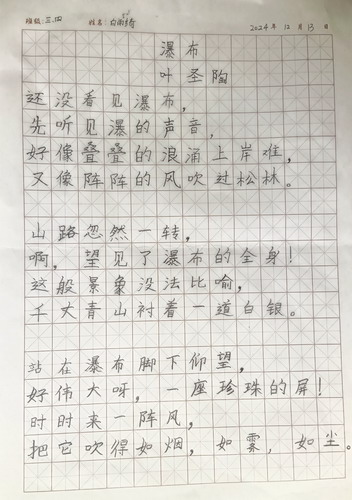 班级：三.四 姓名：白雨绮 2024年12月13日
瀑布
叶圣陶
还没看见瀑布，
先听见瀑的声音，
好像叠叠的浪涌上岸难，
又像阵阵的风吹过松林。
山路忽然一转，
啊，望见了瀑布的全身！
这般景象没法比喻，
千丈青山衬着一道白银。
站在瀑布脚下仰望，
好伟大呀，一座珍珠的屏！
时时来一阵风，
把它吹得如烟，如雾，如尘。